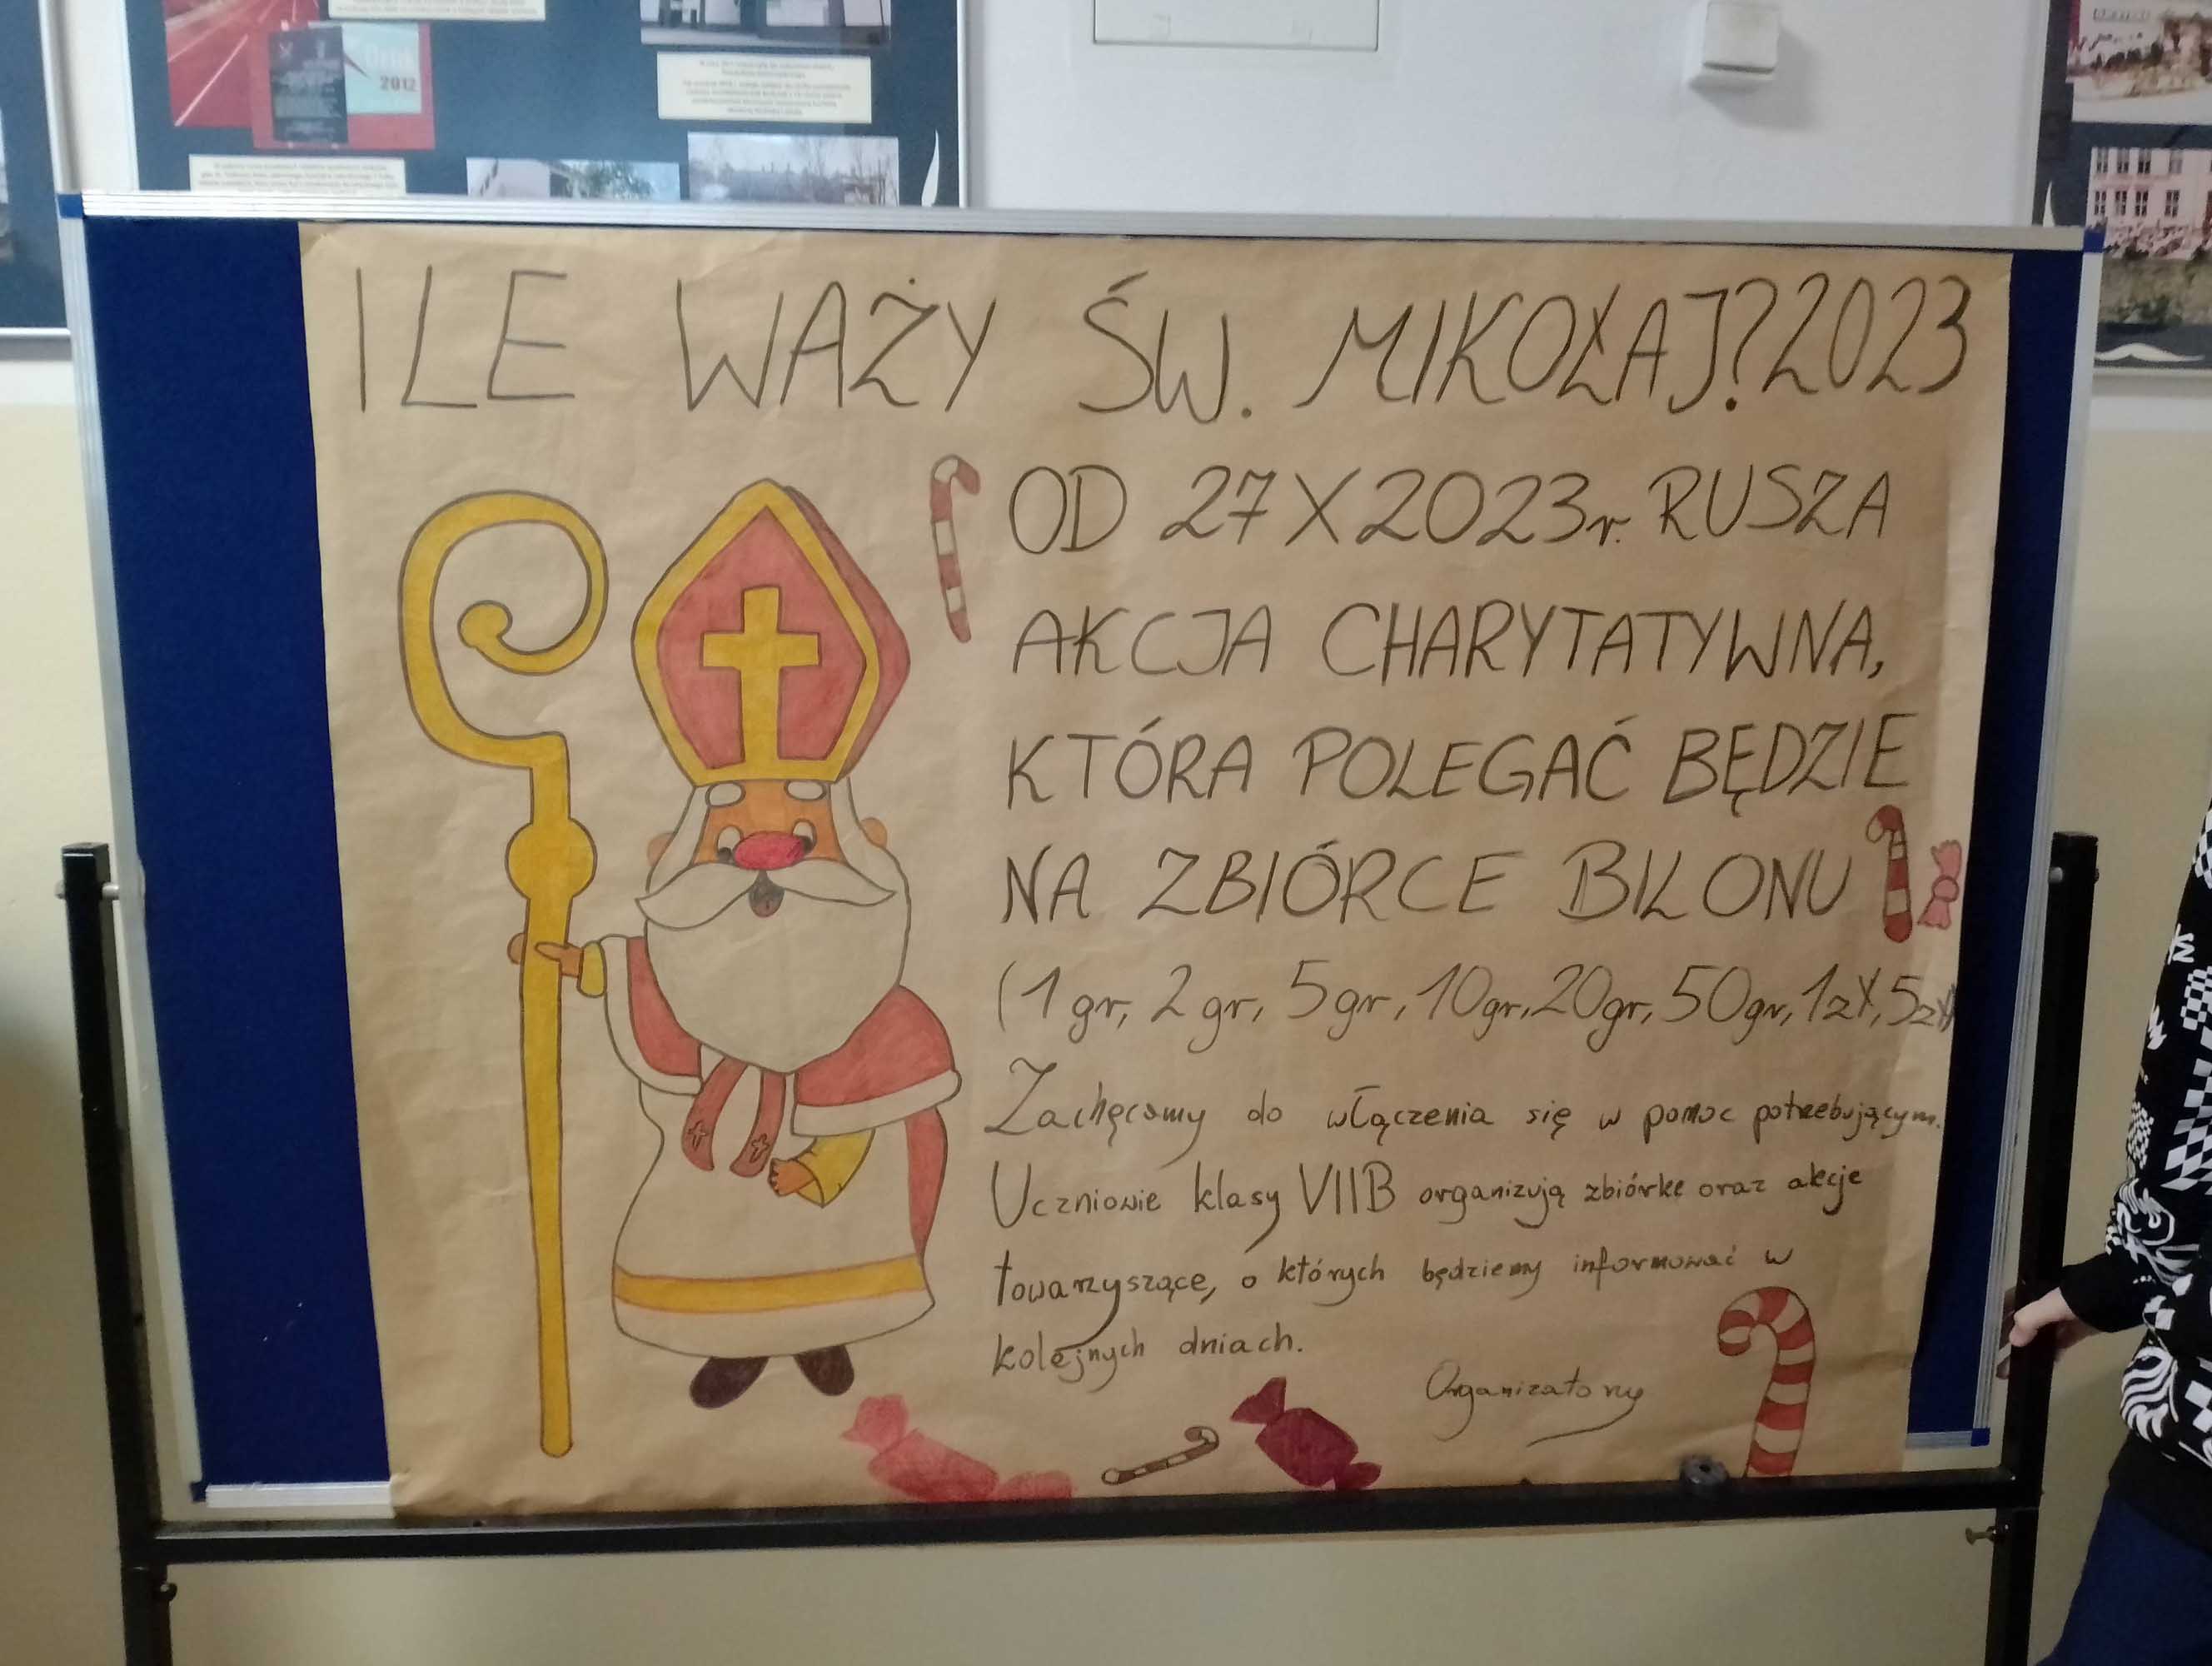 ILE WAŻY ŚW. MIKOŁAJ? 2023
OD 27 X 2023r. RUSZA
AKCJA CHARYTATYWNA,
KTÓRA POLEGAĆ BĘDZIE
NA ZBIÓRCE BILONU
(1 gr, 2 gr, 5 gr, 10 gr, 20 gr, 50 gr, 1 zł, 5 zł)
Zachęcamy do włączenia się w pomoc potrzebującym.
Uczniowie klasy VIIB organizują zbiórkę oraz akcje
towarzyszące, o których będziemy informować w
kolejnych dniach.
Organizatorzy
2012